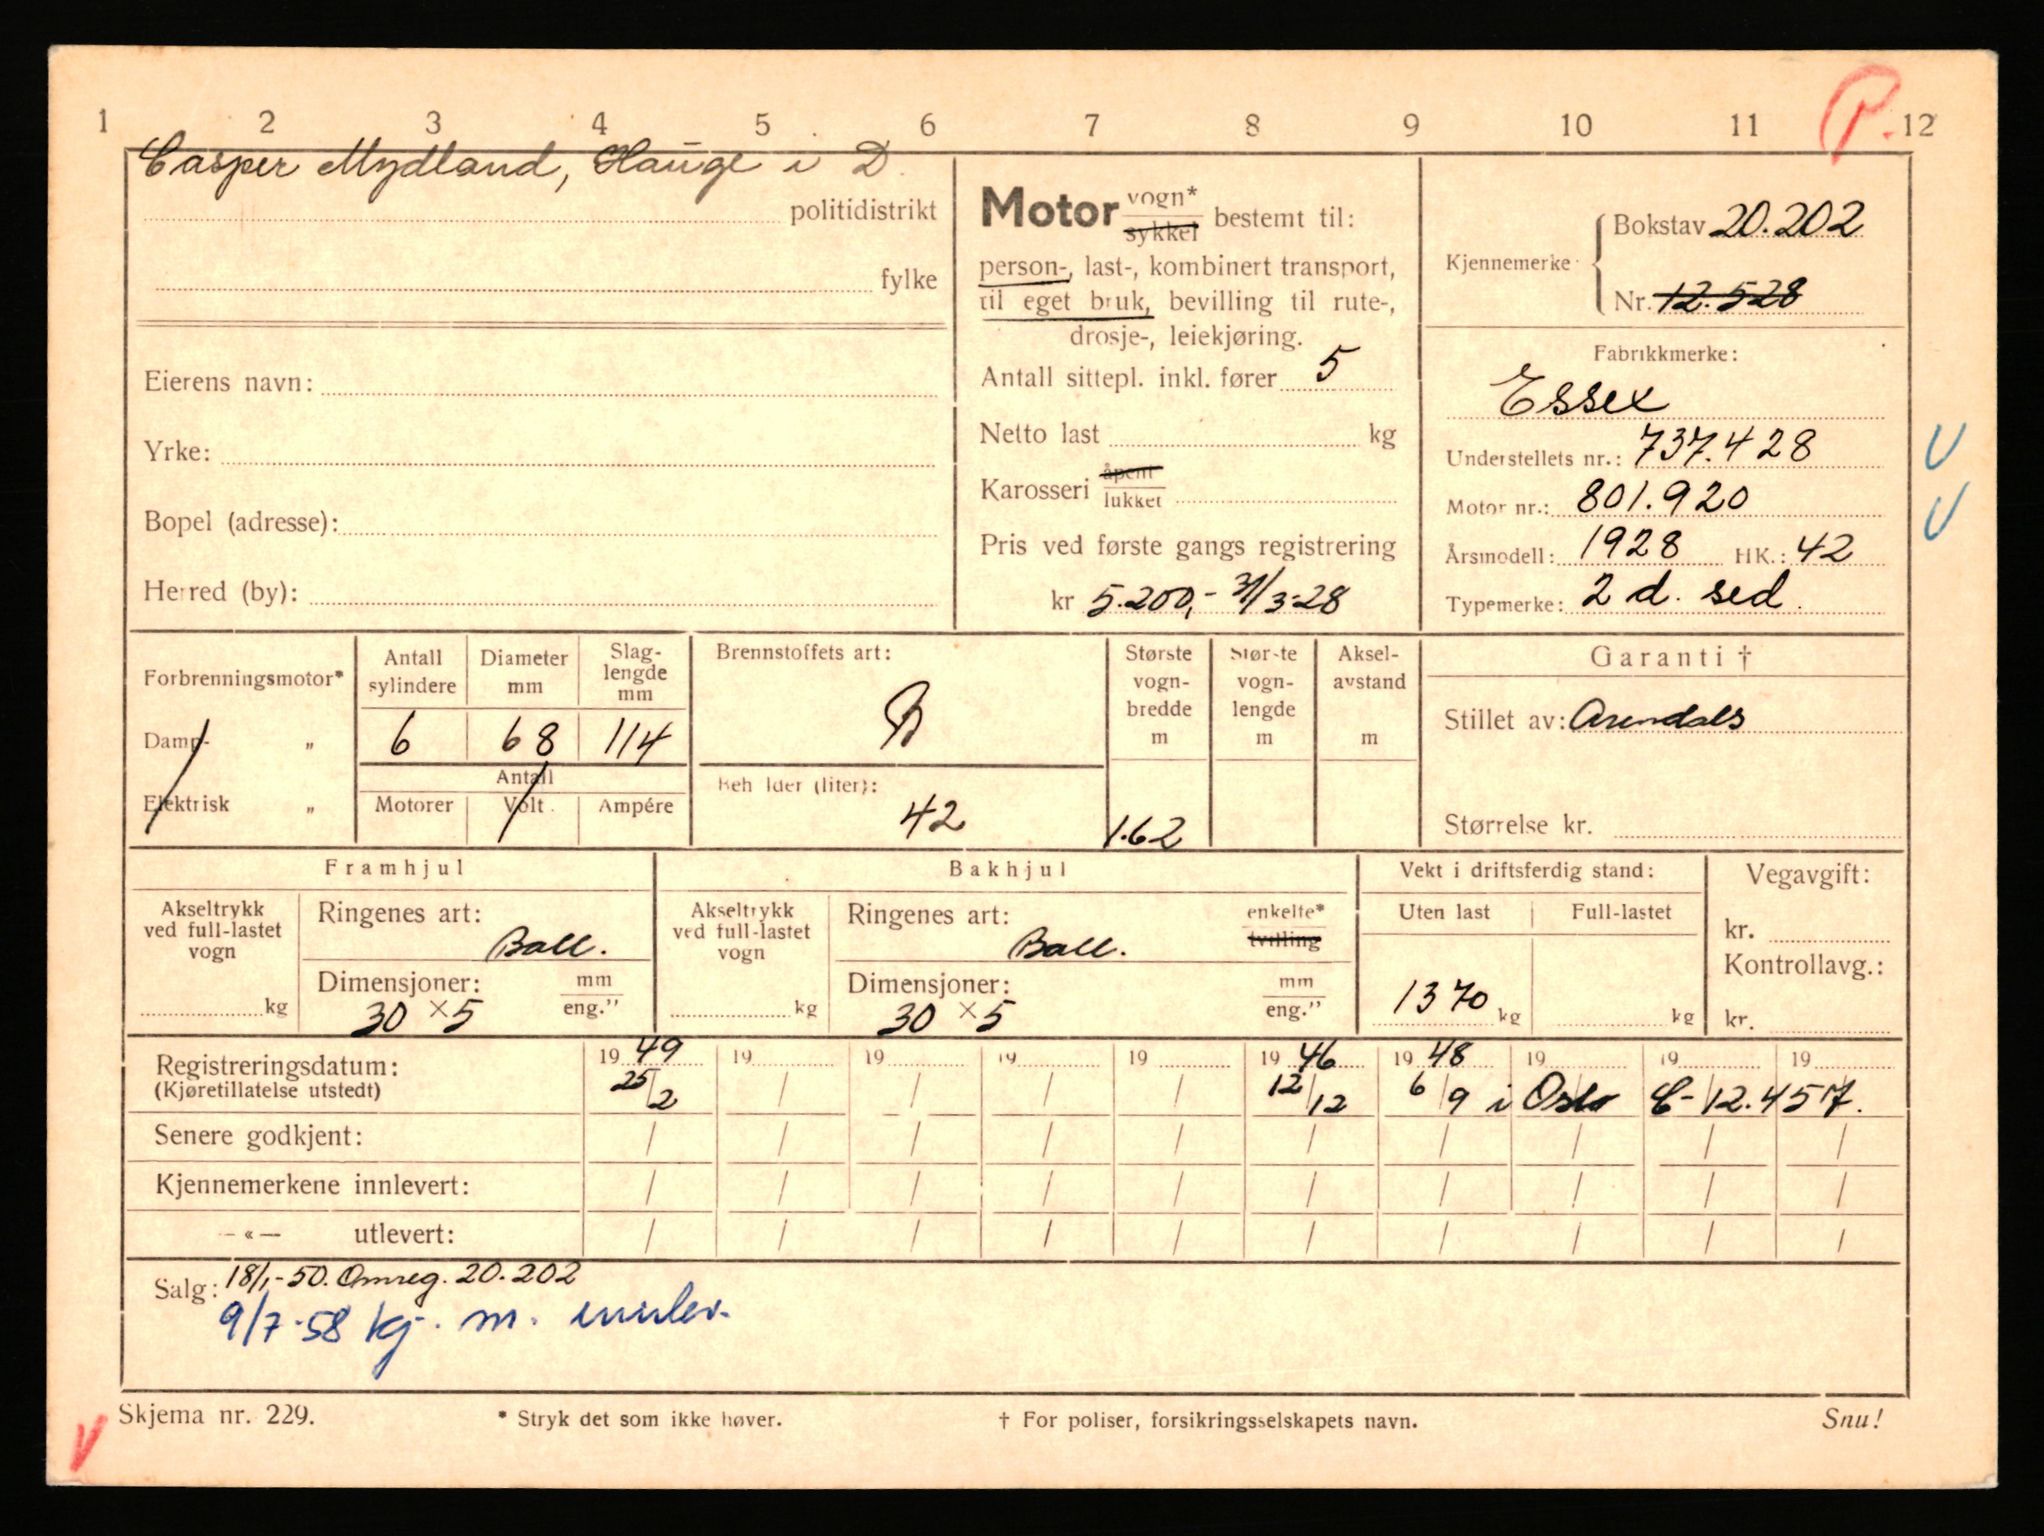 1 2 3 4 5 6 7 8 9 10 11 P. 12
Casper Mydland, Hauge i D.
politidistrikt
fylke
Eierens navn:
Yrke:
Bopel (adresse):
Herred (by):
Motor vogn* sykkel bestemt til:
person-, last-, kombinert transport,
til eget bruk, bevilling til rute-,
drosje-, leiekjøring.
Antall sittepl. inkl. fører 5
Netto last kg
Karosseri åpent lukket
Pris ved første gangs registrering
kr 5.200,- 31/3-28
Kjennemerke
Bokstav 20.202
Nr. 12.528
Fabrikkmerke:
Essex
Understellets nr.: 737.428
Motor nr.: 801.920
Årsmodell: 1928 HK.: 42
Typemerke: 2 d. sed.
Forbrenningsmotor*
Damp- „
Elektrisk „
Antall sylindere
6
Diameter mm
68
Slag-lengde mm
114
Antall
Motorer Volt Ampére
Brennstoffets art:
B
Beholder (liter):
42
Største vogn-bredde m
1.62
Største vogn-lengde m
Aksel-avstand m
Garanti †
Stillet av: Arendals
Størrelse kr.
Framhjul
Akseltrykk ved full-lastet vogn
kg
Ringenes art:
Ball.
Dimensjoner: mm eng."
30 × 5
Bakhjul
Akseltrykk ved full-lastet vogn
kg
Ringenes art: enkelte* tvilling
Ball.
Dimensjoner: mm eng."
30 × 5
Vekt i driftsferdig stand:
Uten last Full-lastet
1370 kg kg
Vegavgift:
kr.
Kontrollavg.:
kr.
Registreringsdatum: 19 49 19 19 19 19 19 46 19 48 19 19 19
(Kjøretillatelse utstedt) 25/2 / / / / 12/12 6/9 i Oslo C-12.457.
Senere godkjent: / / / / / / / / / /
Kjennemerkene innlevert: / / / / / / / / / /
— « — utlevert: / / / / / / / / / /
Salg: 18/1-50. Omreg. 20.202
9/7-58 kj. m. innlev.
Skjema nr. 229. * Stryk det som ikke høver. † For poliser, forsikringsselskapets navn. Snu!